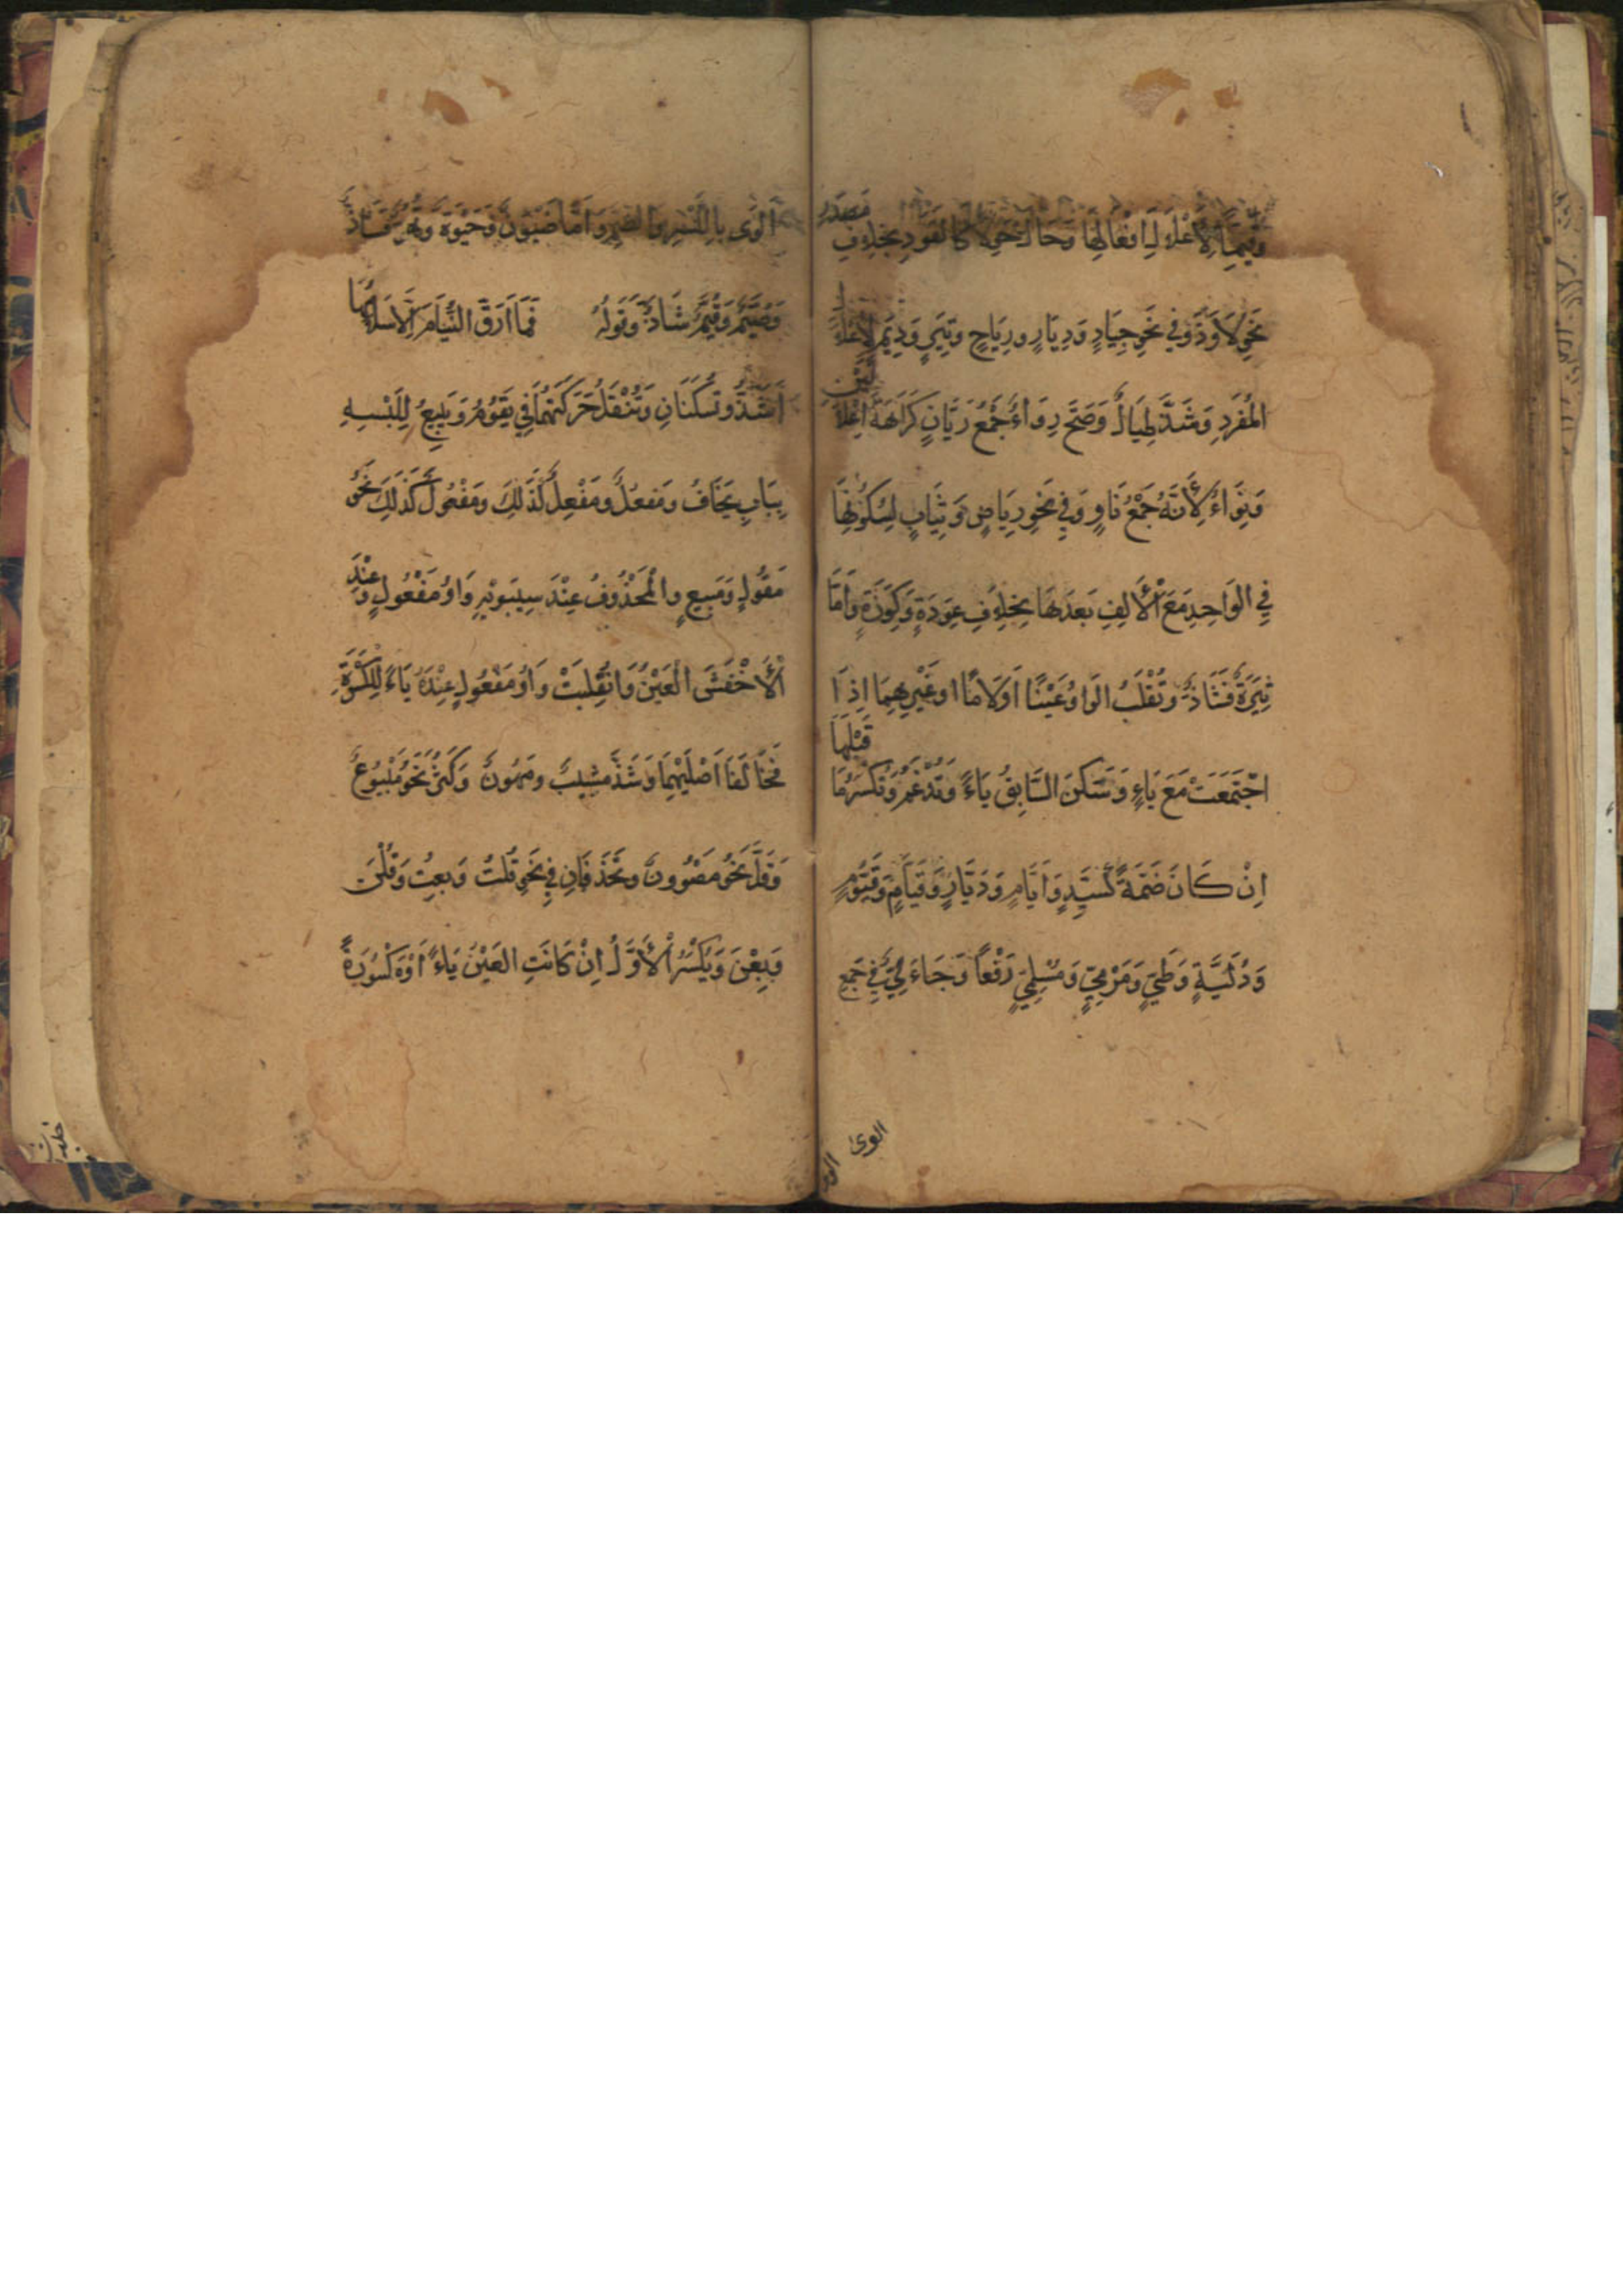 وَقِيَمًا لِاِعْلَالِ اَفْعَالِهَا وَحَالَ حِوَلًا كَالقَوَدِ بِخِلَافِ مَصْدَرِ
نَحْوِ لَاوَذَ وَفِي نَحْوِ جِيَادٍ وَدِيَارٍ وَرِيَاحٍ وَتِيَرٍ وَدِيَمٍ لِاِعْلَالِ
المُفْرَدِ وَشَذَّ طِيَالٌ وَصَحَّ رِوَاءٌ جَمْعُ رَيَّانٍ كَرَاهَةَ اِعْلَالَيْنِ
وَنِوَاءٌ لِأَنَّهُ جَمْعُ نَاوٍ وَفِي نَحْوِ رِيَاضٍ وَثِيَابٍ لِسُكُونِهَا
فِي الوَاحِدِ مَعَ الْأَلِفِ بَعْدَهَا بِخِلَافِ عِوَدَةٍ وَكِوَزَةٍ وَاَمَّا
ثِيَرَةٌ فَشَاذٌّ وَتُقْلَبُ الوَاوُ عَيْنًا اَوْ لَامًا اَوْ غَيْرِهِمَا اِذَا
اجْتَمَعَتْ مَعَ يَاءٍ وَسَكَنَ السَّابِقُ يَاءً وَتُدْغَمُ وَتُكْسَرُ مَا قَبْلَهَا
اِنْ كَانَ ضَمَّةً كَسَيِّدٍ وَاَيَّامٍ وَدَيَّارٍ وَقَيَّامٍ وَقَيُّومٍ
وَدُلَيَّةٍ وَطَيٍّ وَمَرْمِيٍّ وَمُسْلِمِيَّ رَفْعًا وَجَاءَ لِيٌّ فِي جَمْعِ
الوى
اَلْوَى بِالكَسْرِ وَالضَّمِّ وَاَمَّا ضَيْوَنٌ وَحَيْوَةٌ وَنَهُوٌّ فَشَاذٌّ
وَصُيَّمٌ وَقُيَّمٌ شَاذٌّ وَقَولُهُ فَمَا اَرَّقَ النُّيَّامَ اِلَّا سَلَامُهَا
اَشَذُّ وَتُسَكَّنَانِ وَتُنْقَلُ حَرَكَتُهُمَا فِي يَقُوْمُ وَيَبِيعُ لِلَبْسِهِ
بِبَابِ يَخَافُ وَمَفْعُلٌ وَمَفْعِلٌ كَذَلِكَ وَمَفْعُولٌ كَذَلِكَ نَحْوُ
مَقُولٍ وَمَبِيعٍ وَالْمَحْذُوفُ عِنْدَ سِيبَوَيْهِ وَاوُ مَفْعُولٍ وَعِنْدَ
الْأَخْفَشِ العَيْنُ وَانْقَلَبَتْ وَاوُ مَفْعُولٍ عِنْدَهُ يَاءً لِلْكَسْرَةِ
فَخَالَفَا اَصْلَيْهِمَا وَشَذَّ مَشِيبٌ وَمَهُوبٌ وَكَثُرَ نَحْوُ مَبْيُوعٍ
وَقَلَّ نَحْوُ مَصْوُونٍ وَتُحْذَفَانِ فِي نَحْوِ قُلْتُ وَبِعْتُ وَقُلْنَ
وَبِعْنَ وَيُكْسَرُ الْأَوَّلُ اِنْ كَانَتِ العَيْنُ يَاءً اَوْ مَكْسُورَةً